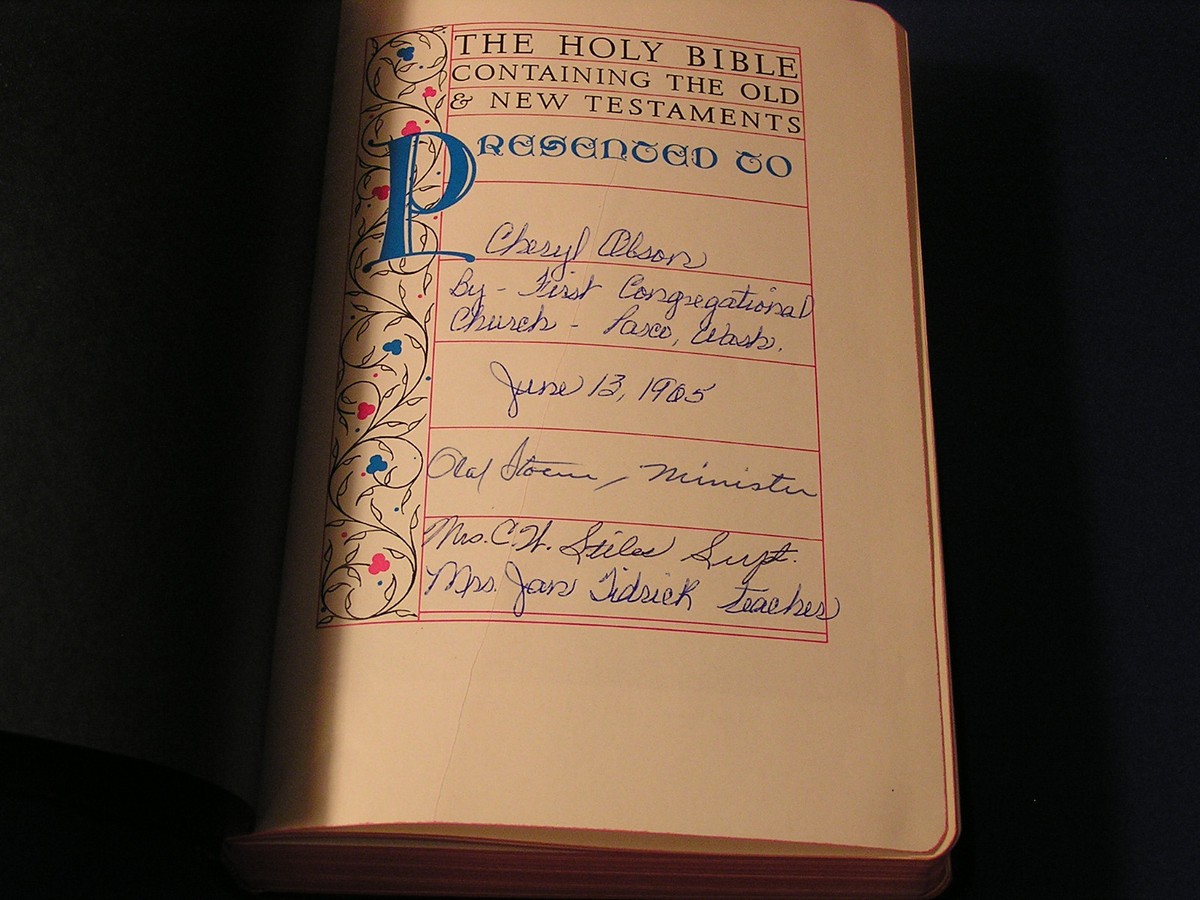 THE HOLY BIBLE
CONTAINING THE OLD
& NEW TESTAMENTS
PRESENTED TO
Cheryl Obson
By - First Congregational
Church - Pasco, Wash.
June 13, 1965
Olaf / Minister
Mrs. C.W. Stiles Supt.
Mrs. Jan Tidrick teacher